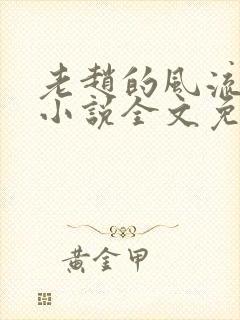 老趙的風流
小說全文免
黃金甲